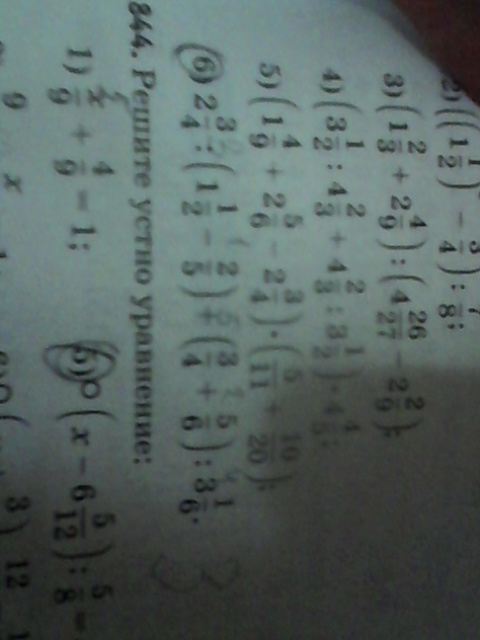 2) ((1 1/2) − 3/4) : 7/8;
3) (1 2/3 + 2 4/9) : (4 26/27 − 2 2/9);
4) (3 1/2 : 4 2/3 + 4 2/3 : 3 1/2) · 4 4/5;
5) (1 4/9 + 2 5/6 − 2 3/4) · (5/11 + 10/20);
6) 2 3/4 : (1 1/2 − 2/5) + (3/4 + 5/6) : 3 1/6.
844. Решите устно уравнение:
1) x/9 + 4/9 = 1;
5) (x − 6 5/12) : 5/8 =